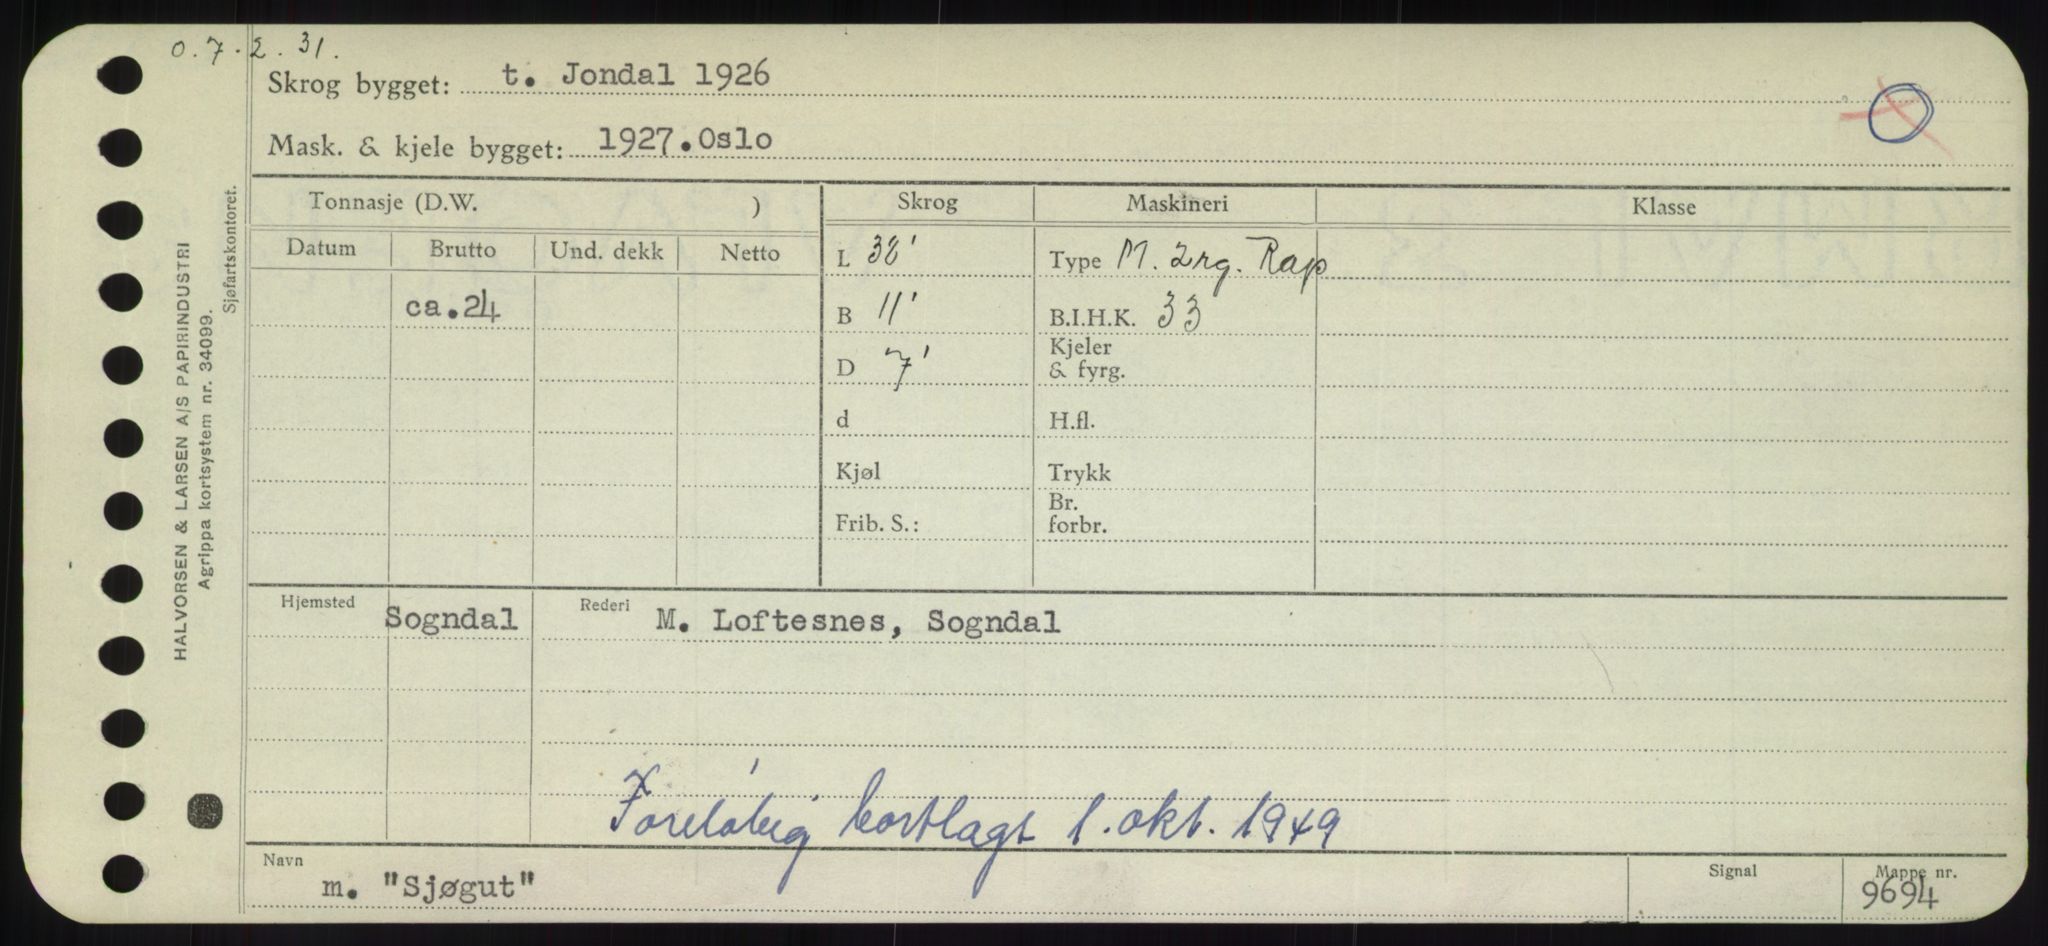 0.7.2.31.
Skrog bygget: t. Jondal 1926
Mask. & kjele bygget: 1927.Oslo
Tonnasje (D.W. )
Skrog
Maskineri
Klasse
Datum
Brutto
Und. dekk
Netto
ca.24
L 38'
B 11'
D 7'
d
Kjøl
Frib. S.:
Type M. 2rg. Rap
B.I.H.K. 33
Kjeler
& fyrg.
H.fl.
Trykk
Br.
forbr.
Hjemsted Sogndal
Rederi M. Loftesnes, Sogndal
Foreløbig bortlagt 1. okt. 1949
Navn m. "Sjøgut"
Signal
Mappe nr.
9694
HALVORSEN & LARSEN A/S PAPIRINDUSTRI
Agrippa kortsystem nr. 34099.
Sjøfartskontoret.